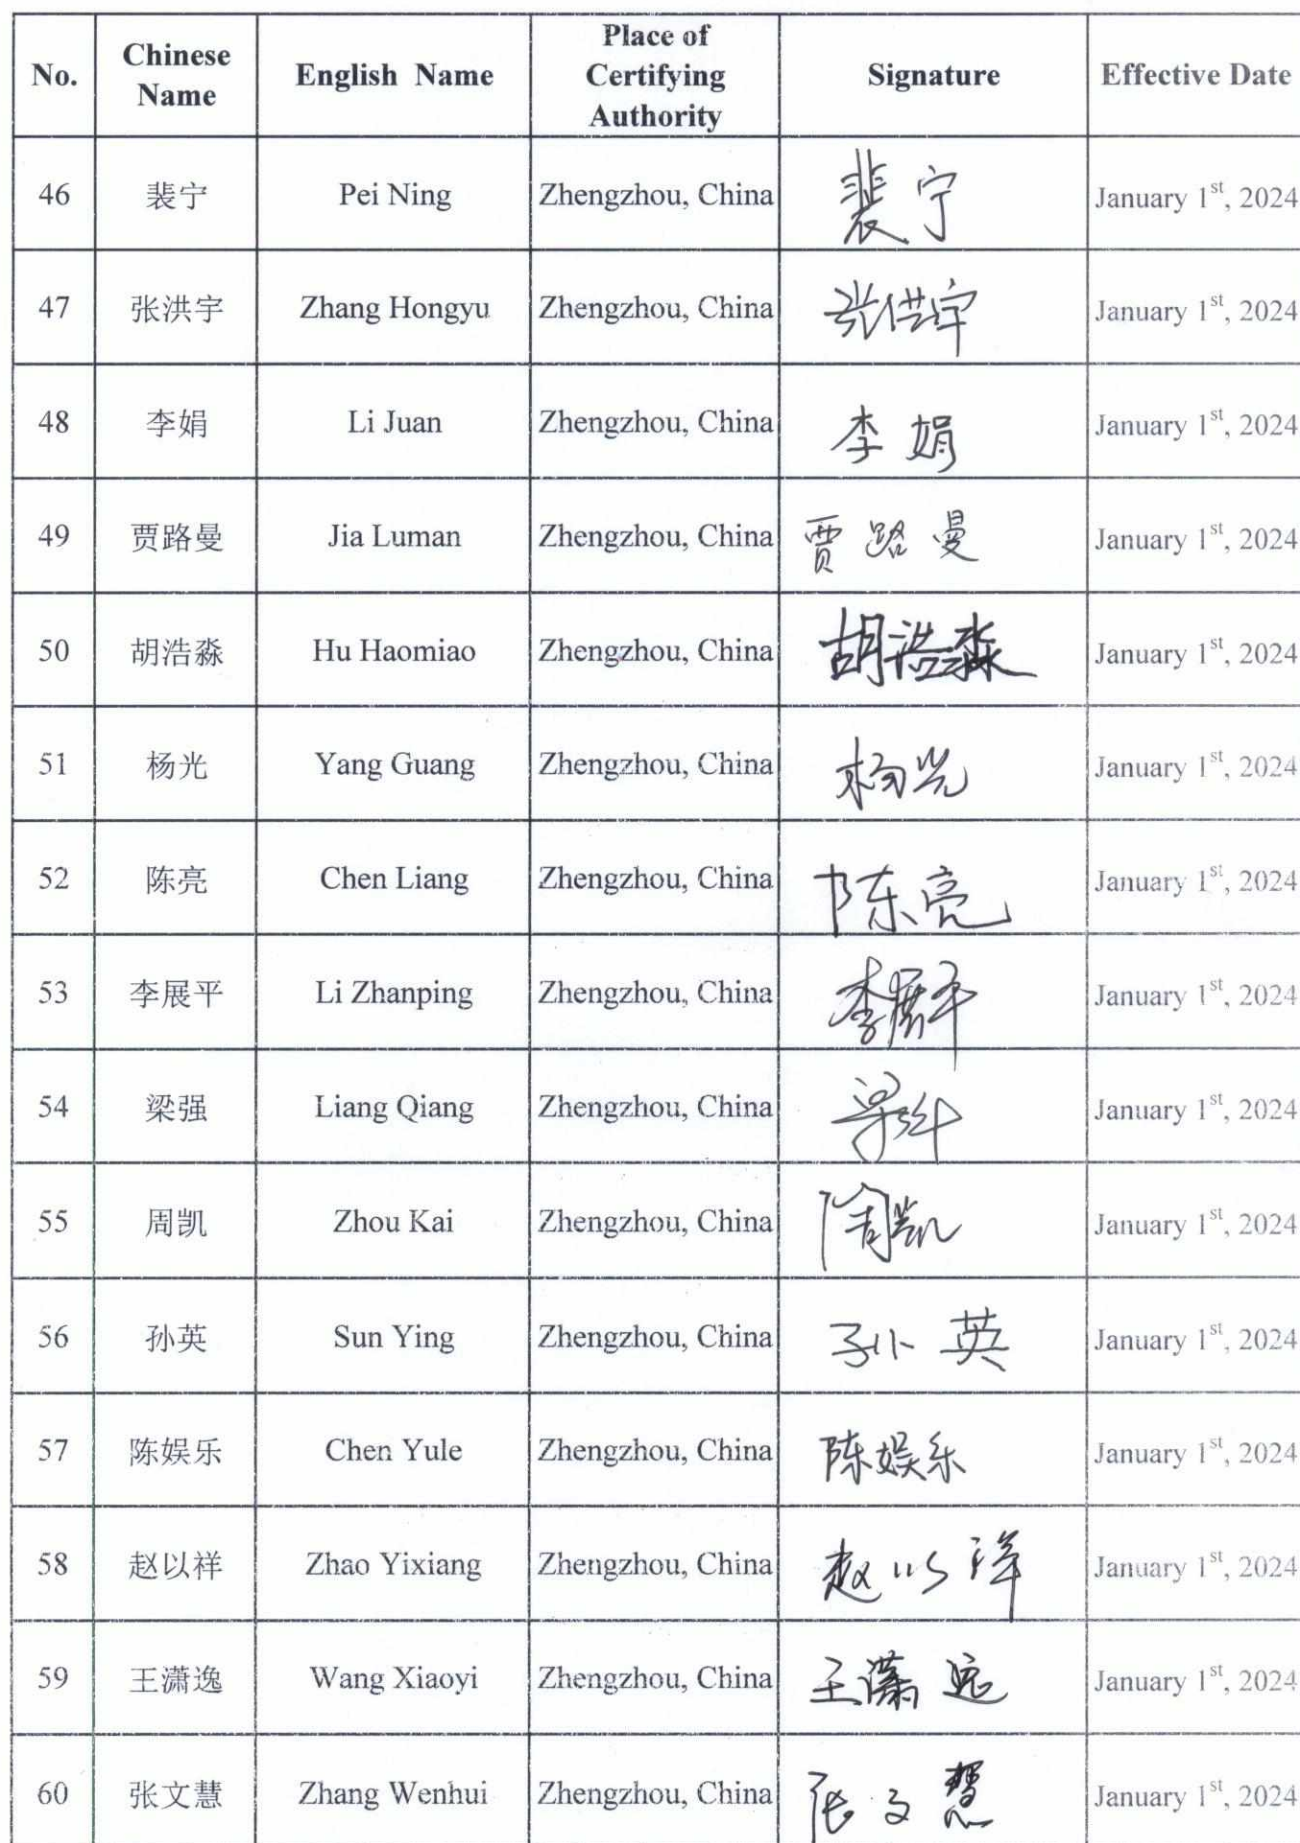 No. Chinese Name English Name Place of Certifying Authority Signature Effective Date
46 裴宁 Pei Ning Zhengzhou, China 裴宁 January 1st, 2024
47 张洪宇 Zhang Hongyu Zhengzhou, China 张洪宇 January 1st, 2024
48 李娟 Li Juan Zhengzhou, China 李娟 January 1st, 2024
49 贾路曼 Jia Luman Zhengzhou, China 贾路曼 January 1st, 2024
50 胡浩淼 Hu Haomiao Zhengzhou, China 胡浩淼 January 1st, 2024
51 杨光 Yang Guang Zhengzhou, China 杨光 January 1st, 2024
52 陈亮 Chen Liang Zhengzhou, China 陈亮 January 1st, 2024
53 李展平 Li Zhanping Zhengzhou, China 李展平 January 1st, 2024
54 梁强 Liang Qiang Zhengzhou, China 梁强 January 1st, 2024
55 周凯 Zhou Kai Zhengzhou, China 周凯 January 1st, 2024
56 孙英 Sun Ying Zhengzhou, China 孙英 January 1st, 2024
57 陈娱乐 Chen Yule Zhengzhou, China 陈娱乐 January 1st, 2024
58 赵以祥 Zhao Yixiang Zhengzhou, China 赵以祥 January 1st, 2024
59 王潇逸 Wang Xiaoyi Zhengzhou, China 王潇逸 January 1st, 2024
60 张文慧 Zhang Wenhui Zhengzhou, China 张文慧 January 1st, 2024